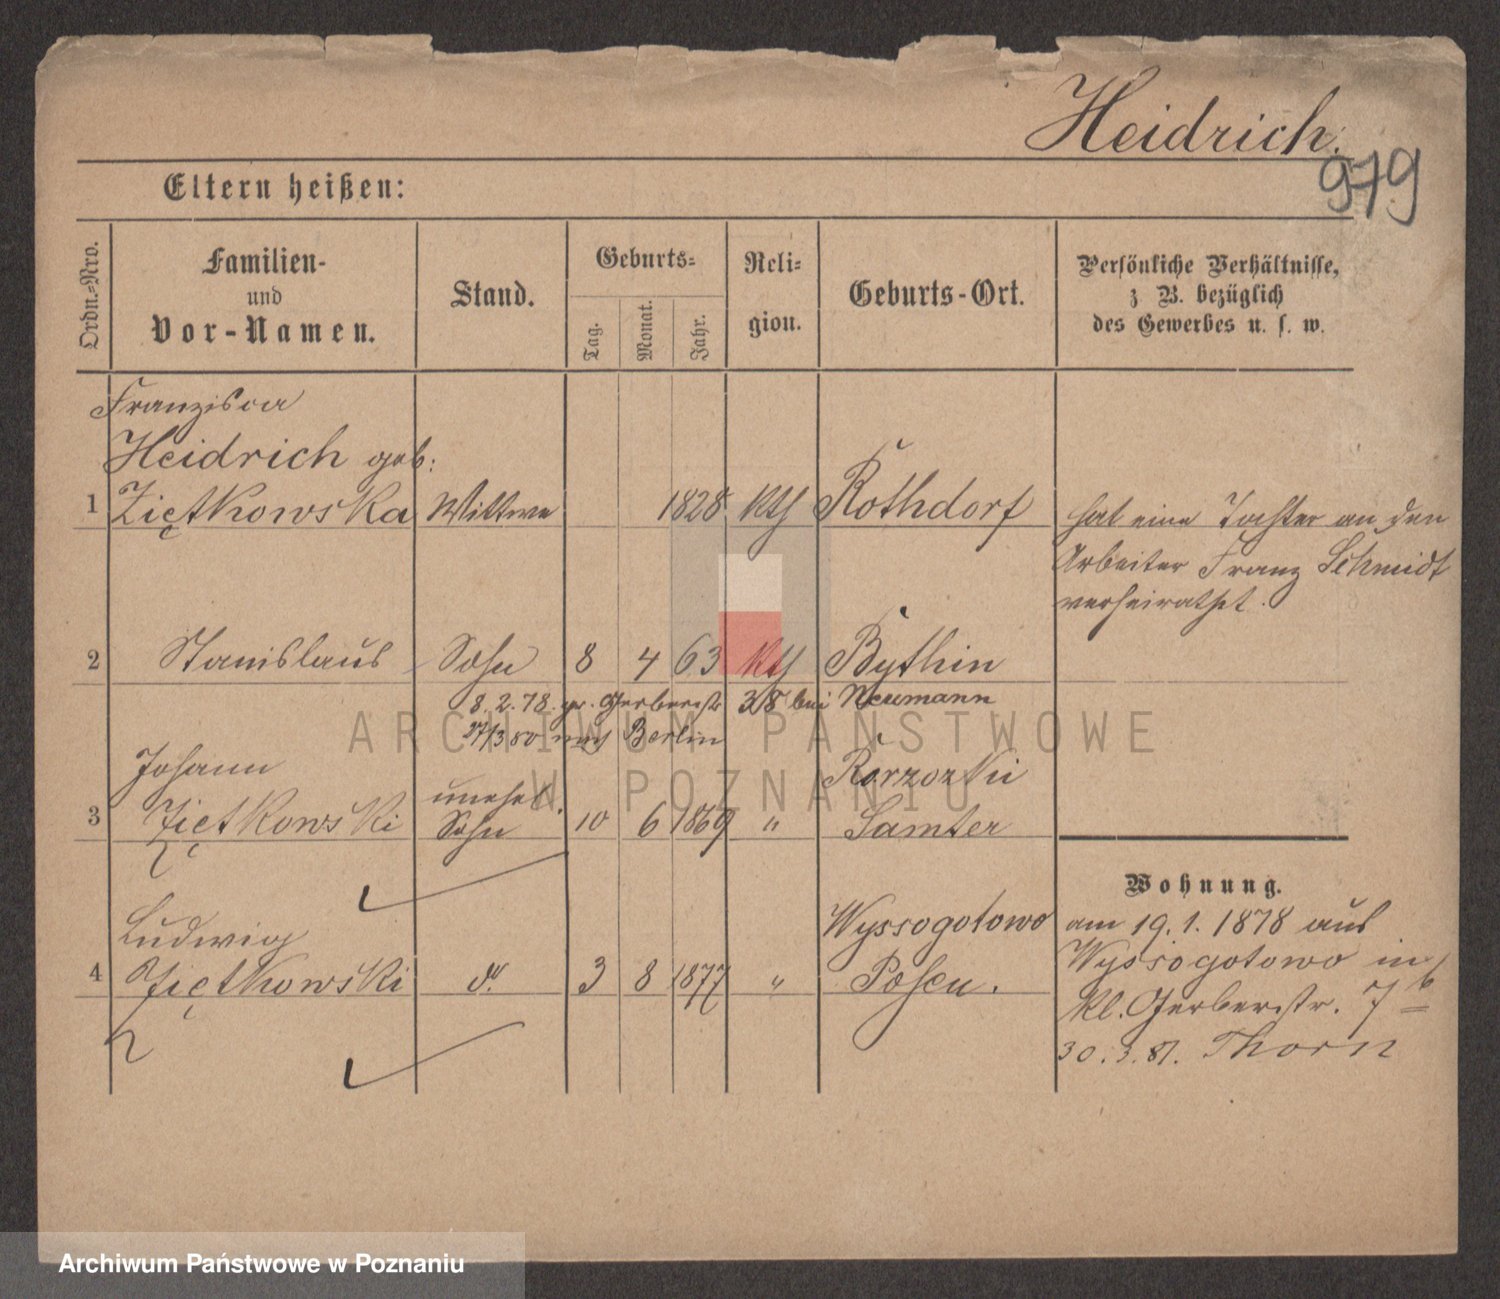 Heidrich.
979
Eltern heißen:
Ordn.-Nro.
Familien-
und
Vor-Namen.
Stand.
Geburts-
Tag.
Monat.
Jahr.
Reli-
gion.
Geburts-Ort.
Persönliche Verhältnisse,
z B. bezüglich
des Gewerbes u. s. w.
Franzisca
Heidrich geb:
1 Ziętkowska Wittwe 1828 kth Rothdorf
hat eine Tochter an den
Arbeiter Franz Schmidt
verheirathet.
2 Stanislaus Sohn 8 4 63 kth Bythin
8.2.78. gr. Gerberstr 38 bei Neumann
27/3 80 nach Berlin
Johann unehel. 
3 Ziętkowski Sohn 10 6 1869 " Samter
Ludwig Wyssogotowo
4 Ziętkowski do. 3 8 1877 " Posen.
Wohnung.
am 19.1.1878 aus
Wyssogotowo in
kl. Gerberstr. 7b
30.3.81. Thorn
ARCHIWUM PAŃSTWOWE
W POZNANIU
Archiwum Państwowe w Poznaniu